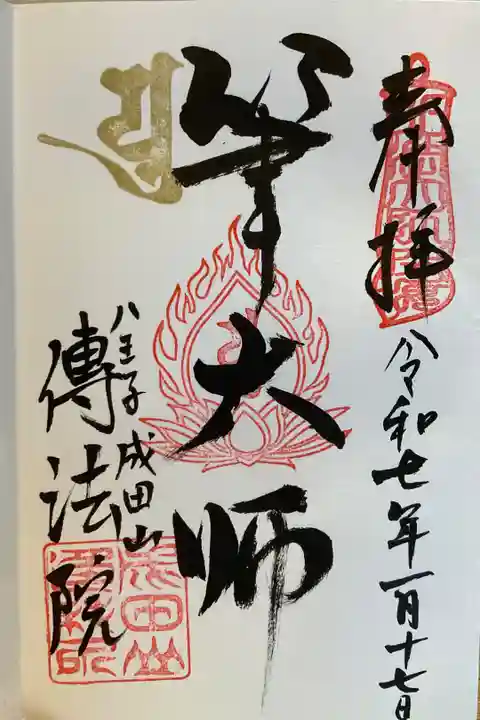 奉拝
令和七年一月十七日
筆大師
八王子成田山
傳法院
成田山